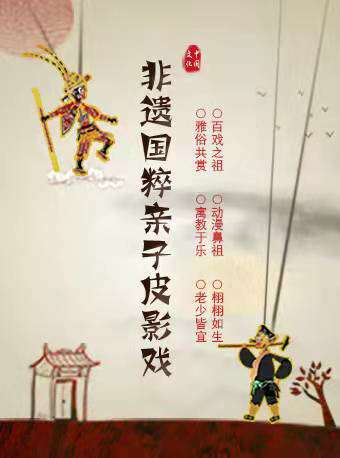 中国
文化
非遗国粹亲子皮影戏
○百戏之祖
○雅俗共赏
○动漫鼻祖
○寓教于乐
○栩栩如生
○老少皆宜